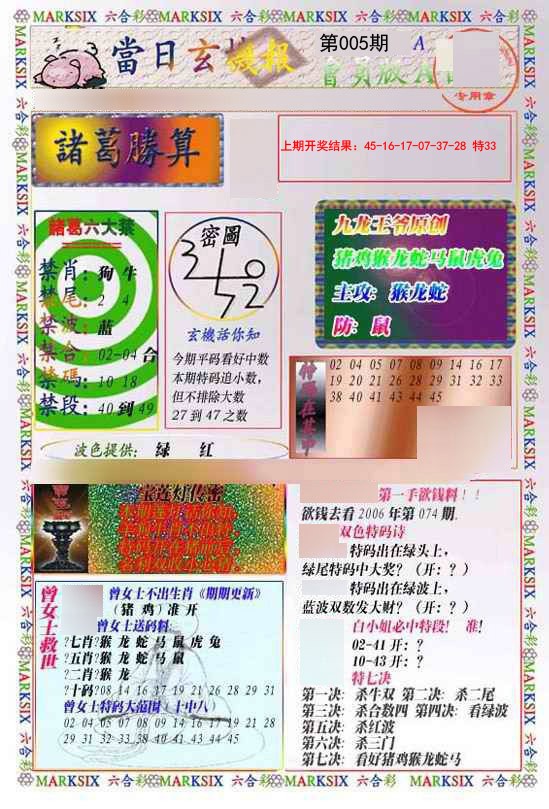 MARKSIX 六合彩 MARKSIX 六合彩 MARKSIX 六合彩 MARKSIX
當日玄機報
第005期
A
會員版A
专用章
諸葛勝算
上期开奖结果：45-16-17-07-37-28 特33
諸葛六大禁
禁肖：狗 牛
禁尾：2 4
禁波：蓝
禁合：02-04 合
禁碼：10 18
禁段：40 到 49
密圖
玄機活你知
今期平码看好中数
本期特码追小数，
但不排除大数
27 到 47 之数
九龙王爷原创
猪鸡猴龙蛇马鼠虎兔
主攻：猴龙蛇
防：鼠
02 04 05 07 08 09 14 16 17
19 20 21 26 28 29 31 32 33
38 40 41 43 44 45
波色提供： 绿 红
宝莲灯传密
曾女士救世
曾女士不出生肖《期期更新》
(猪 鸡) 准 开
曾女士送码料:
?七肖?猴 龙 蛇 马 鼠 虎 兔
?五肖?猴 龙 蛇 马 鼠
?二肖?猴 龙
?十码?08 14 16 17 19 21 26 28 29 31
曾女士特码大范围 (十中八)
02 04 05 07 08 09 14 16 17 19 21 28
29 31 32 33 38 40 41 43 44 45
第一手欲钱料！！
欲钱去看 2006 年第 074 期.
双色特码诗
特码出在绿头上，
绿尾特码中大奖？(开：？)
特码出在绿波上，
蓝波双数发大财？(开：？)
白小姐必中特段! 准!
02-41 开：？
10-43 开：？
特七决
第一决：杀牛双 第二决：杀二尾
第三决：杀合数四 第四决：看绿波
第五决：杀红波
第六决：杀三门
第七决：看好猪鸡猴龙蛇马
MARKSIX 六合彩 MARKSIX 六合彩 MARKSIX 六合彩 MARKSIX